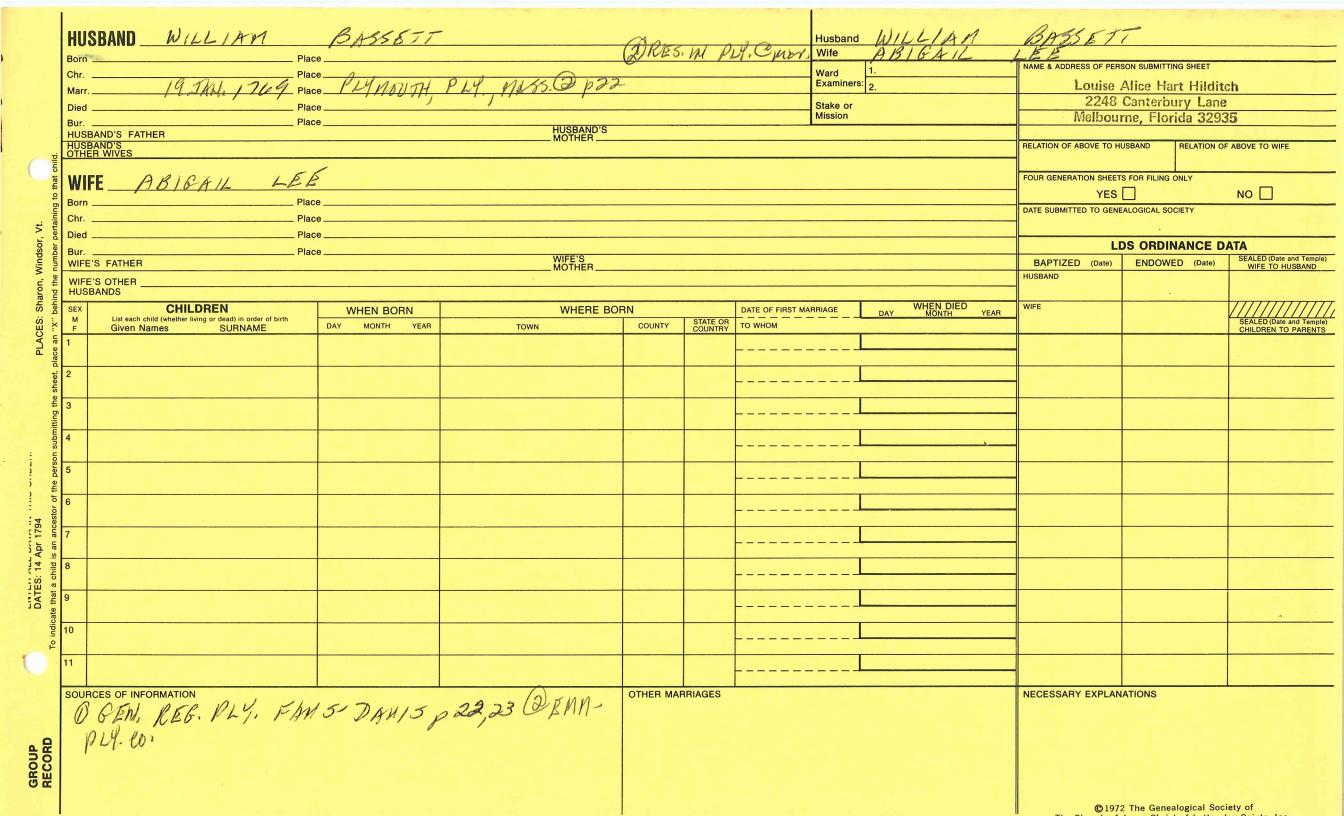 HUSBAND WILLIAM BASSETT
Born Place ② RES. IN PLY. C
Chr. Place
Marr. 19 JAN. 1769 Place PLYMOUTH, PLY., MASS. ② p22
Died Place
Bur. Place
HUSBAND'S FATHER HUSBAND'S MOTHER
HUSBAND'S OTHER WIVES
Husband WILLIAM BASSETT
Wife ABIGAIL LEE
Ward Examiners: 1.
2.
Stake or Mission
NAME & ADDRESS OF PERSON SUBMITTING SHEET
Louise Alice Hart Hilditch
2248 Canterbury Lane
Melbourne, Florida 32935
RELATION OF ABOVE TO HUSBAND RELATION OF ABOVE TO WIFE
FOUR GENERATION SHEETS FOR FILING ONLY
YES NO
DATE SUBMITTED TO GENEALOGICAL SOCIETY
WIFE ABIGAIL LEE
Born Place
Chr. Place
Died Place
Bur. Place
WIFE'S FATHER WIFE'S MOTHER
WIFE'S OTHER HUSBANDS
LDS ORDINANCE DATA
BAPTIZED (Date) ENDOWED (Date) SEALED (Date and Temple) WIFE TO HUSBAND
HUSBAND
WIFE
SEALED (Date and Temple) CHILDREN TO PARENTS
SEX M F
CHILDREN
List each child (whether living or dead) in order of birth
Given Names SURNAME
WHEN BORN
DAY MONTH YEAR
WHERE BORN
TOWN COUNTY STATE OR COUNTRY
DATE OF FIRST MARRIAGE
TO WHOM
WHEN DIED
DAY MONTH YEAR
1
2
3
4
5
6
7
8
9
10
11
SOURCES OF INFORMATION
① GEN. REG. PLY. FAMS DAVIS p 22,23 ②
PLY. CO.
OTHER MARRIAGES
NECESSARY EXPLANATIONS
PLACES: Sharon, Windsor, Vt.
DATES: 14 Apr 1794
To indicate that a child is an ancestor of the person submitting the sheet, place an "X" behind the number pertaining to that child.
GROUP RECORD
©1972 The Genealogical Society of